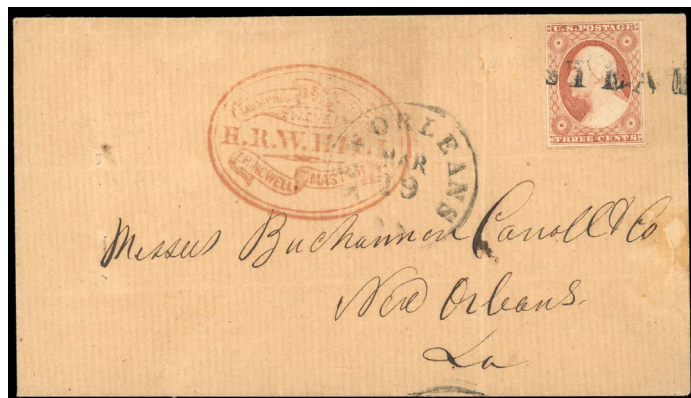 U.S. POSTAGE
THREE CENTS
STEAM
MEMPHIS &
PACKET
H.R.W. HILL
T.P. NEWELL MASTER
ORLEANS
MAR
19
Messrs Buchannon Carroll & Co
New Orleans
La